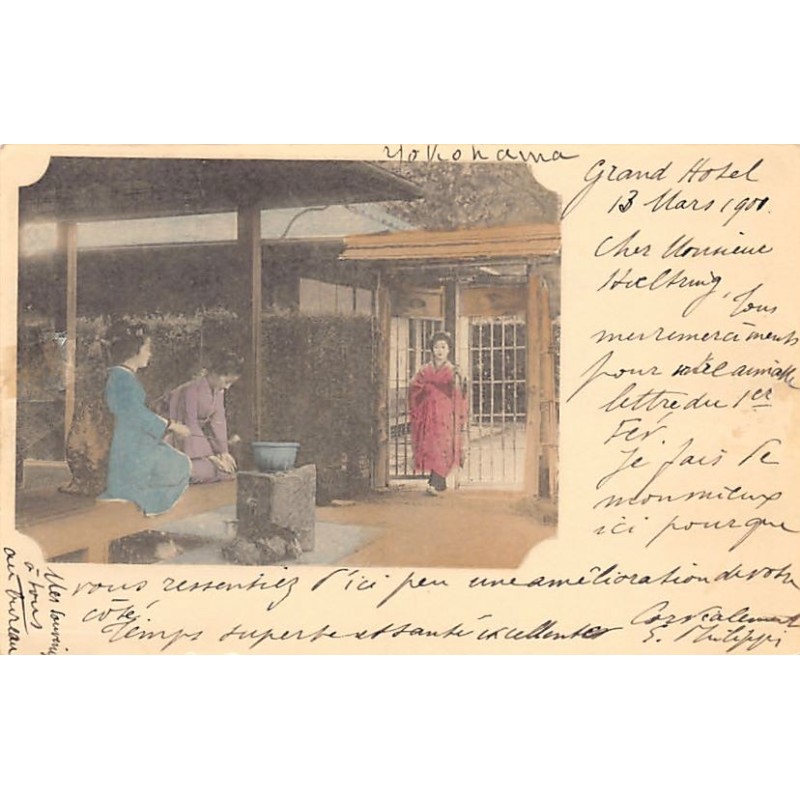 Yokohama
Grand Hotel
13 Mars 1901.
Cher Monsieur
Tous
mes remerciments
pour aimable
lettre du 1er
Fév.
Je fais de
mon mieux
ici pour que
vous ressentiez d'ici peu une amélioration de votre
côté.
Temps superbe et santé excellentes
Cordialement
E. Philippi
Mes souvenirs
à tous
au bureau